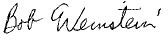 Bob Weinstein